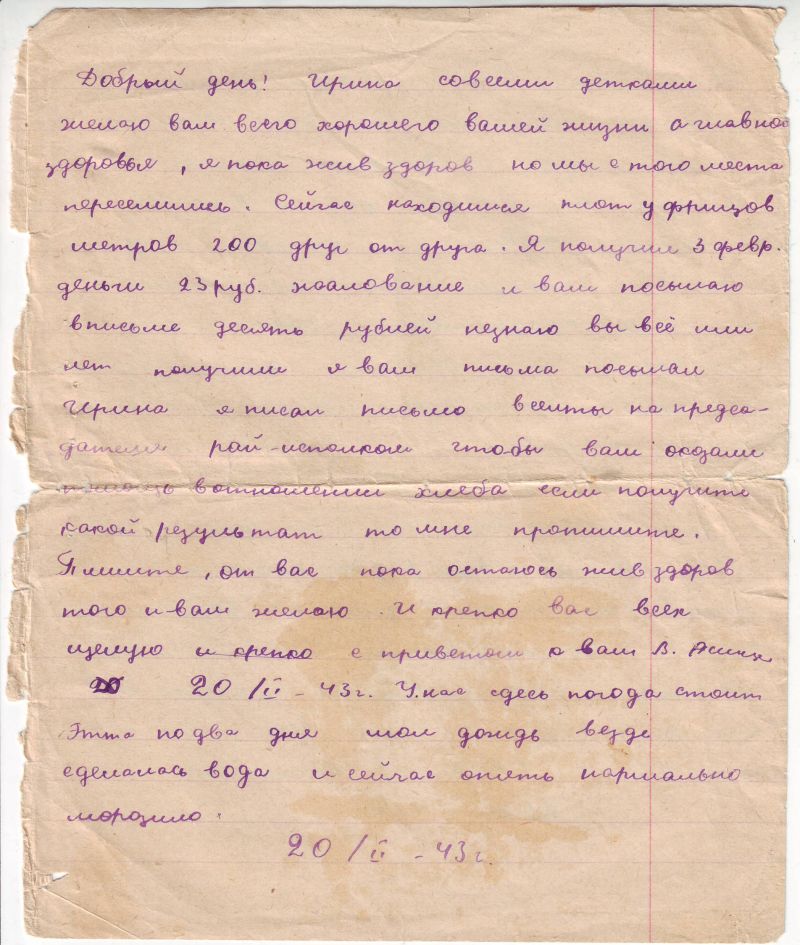 Добрый день! Ирина совсеми детками
желаю вам всего хорошего вашей жизни а главное
здоровья, я пока жив здоров но мы с того места
переселились. Сейчас находимся плот у фрицов
метров 200 друг от друга. Я получил 3 февр.
деньги 23 руб. жалование и вам посылаю
вписьме десять рублей незнаю вы всё или
нет получили я вам письма посылал
Ирина я писал письмо на предсе-
дателя рай-исполком чтобы вам оказали
помощь вотношении хлеба если получите
какой результат то мне пропишите.
Пишите, от вас пока остаюсь жив здоров
того и вам желаю. И крепко вас всех
целую и крепко с приветом к вам В.
20/II - 43г. У нас сдесь погода стоит
по два дня дождь везде
сделалась вода и сейчас опять нармально
морозило.
20/II - 43г.